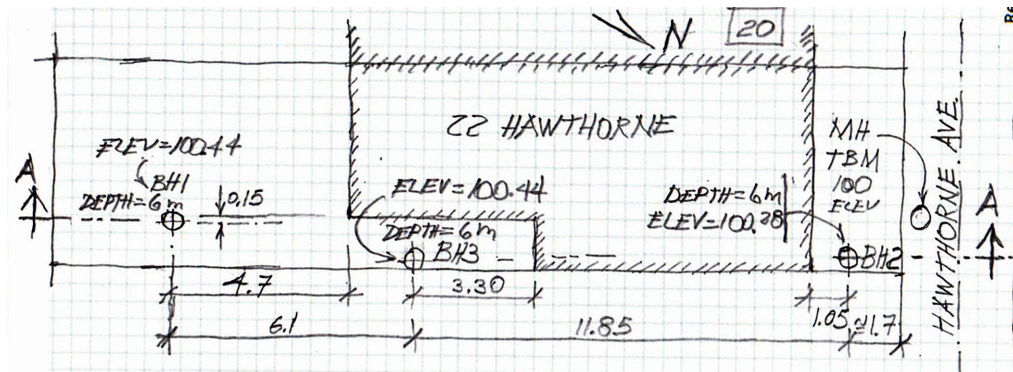 N
20
22 HAWTHORNE
ELEV=100.44
BH1
DEPTH=6m
0.15
ELEV=100.44
DEPTH=6m
BH3
DEPTH=6m
ELEV=100.28
MH
TBM
100
ELEV
BH2
A
A
HAWTHORNE. AVE.
4.7
3.30
1.05
≅1.7
6.1
11.85